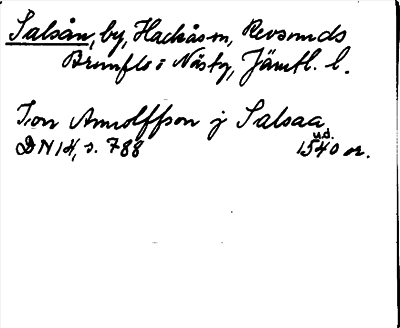 Salsån, by, Hackås sn, Revsunds
Brunflo o Näs tg, Jämtl. l.
Jion Arnolffson j Salsaa
u.d.
DN 14, s. 788 1540 or.